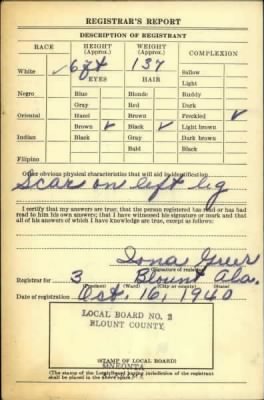 REGISTRAR'S REPORT
DESCRIPTION OF REGISTRANT
RACE HEIGHT (Approx.) WEIGHT (Approx.) COMPLEXION
White ✓ 6 ft 137 Sallow
EYES HAIR Light
Negro Blue Blonde Ruddy
Gray Red Dark
Oriental Hazel Brown Freckled ✓
Brown ✓ Black ✓ Light brown
Indian Black Gray Dark brown
Bald Black
Filipino
Other obvious physical characteristics that will aid in identification
Scar on left leg
I certify that my answers are true; that the person registered has read or has had
read to him his own answers; that I have witnessed his signature or mark and that
all of his answers of which I have knowledge are true, except as follows:
Iona
(Signature of registrar)
Registrar for 3 Blount Ala.
(Precinct) (Ward) (City or county) (State)
Date of registration Oct. 16, 1940
LOCAL BOARD NO. 2
BLOUNT COUNTY
ONEONTA
(STAMP OF LOCAL BOARD)
(The stamp of the Local Board having jurisdiction of the registrant
shall be placed in the above space.)